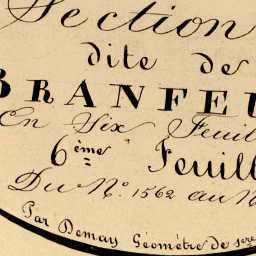 Section
dite de
BRANFEU
En Six Feuil
6ème Feuill
Du N.o 1562 au N
Par Demay Géomètre de 1ere